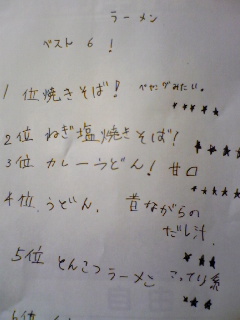 ラーメン
ベスト 6 !
1 位 焼きそば! ペヤングみたい。
★★★★★
2 位 ねぎ塩焼きそば!
★★★★
3 位 カレーうどん! 甘口
★★★★★
4 位 うどん、 昔ながらの
だし汁、
★★★
5 位 とんこつラーメン こってり系
★★★